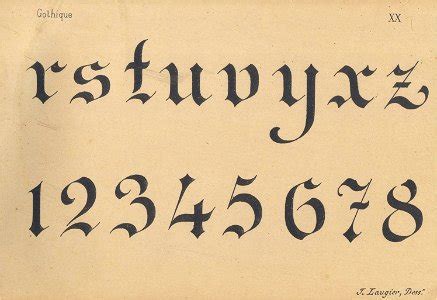 Gothique XX
rstuvyxz
12345678
J. Laugier, Dess.r